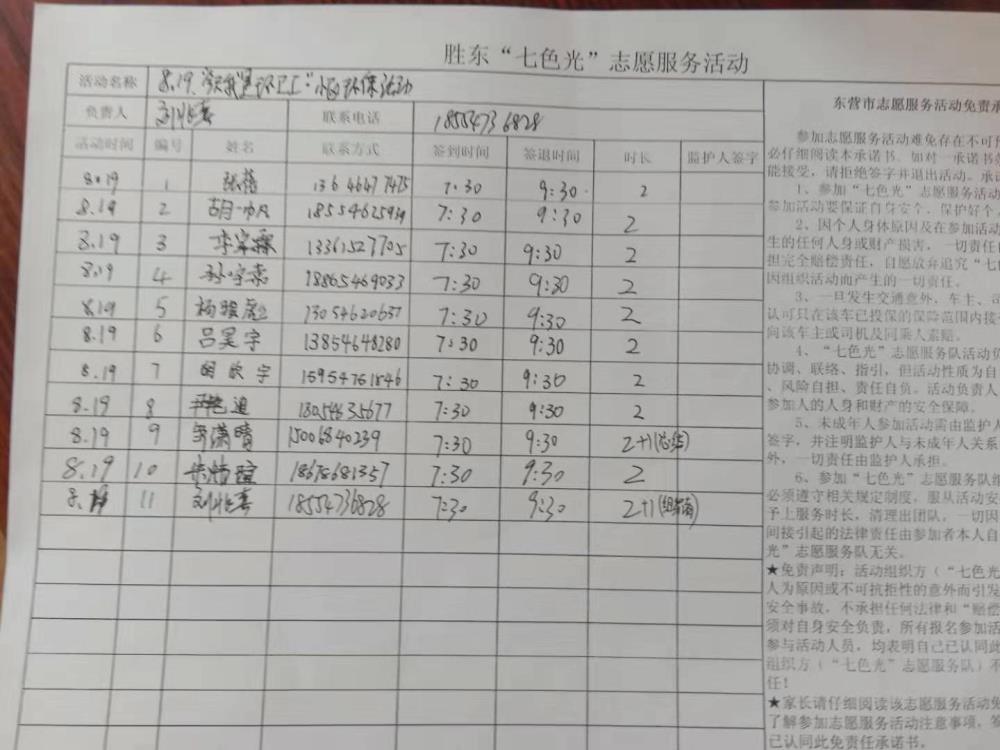 胜东“七色光”志愿服务活动
活动名称 8.19.“今天我是环卫工”小区环保活动
负责人 联系电话 18554736828
活动时间 编号 姓名 联系方式 签到时间 签退时间 时长 监护人签字
8.19 1 张蓓 13646477475 7:30 9:30 2
8.19 2 胡一凡 18554625939 7:30 9:30 2
8.19 3 李富霖 13361527705 7:30 9:30 2
8.19 4 孙宇柔 18865469033 7:30 9:30 2
8.19 5 杨骏彪 13054620637 7:30 9:30 2
8.19 6 吕昊宇 13854648280 7:30 9:30 2
8.19 7 欣宇 15954761846 7:30 9:30 2
8.19 8 13054635677 7:30 9:30 2
8.19 9 潇晴 15006840239 7:30 9:30 2+1(总结)
8.19 10 18678681357 7:30 9:30 2
8.19 11 18554736828 7:30 9:30 2+1
东营市志愿服务活动免责承
参加志愿服务活动难免存在不可预
必仔细阅读本承诺书。如对一承诺书
能接受，请拒绝签字并退出活动。承诺
1、参加“七色光”志愿服务活动
参加活动要保证自身安全，保护好个人
2、因个人身体原因及在参加活动
生的任何人身或财产损害，一切责任
担完全赔偿责任，自愿放弃追究“七
因组织活动而产生的一切责任。
3、一旦发生交通意外，车主、司
认可只在该车已投保的保险范围内接
向该车主或司机及同乘人索赔。
4、“七色光”志愿服务队活动仅
协调、联络、指引，但活动性质为自
、风险自担、责任自负。活动负责人
参加人的人身和财产的安全保障。
5、未成年人参加活动需由监护人
签字，并注明监护人与未成年人关系
外，一切责任由监护人承担。
6、参加“七色光”志愿服务队组
必须遵守相关规定制度，服从活动安
予上服务时长，清理出团队，一切因
间接引起的法律责任由参加者本人自
光”志愿服务队无关。
★免责声明：活动组织方（“七色光
人为原因或不可抗拒性的意外而引发
安全事故，不承担任何法律和“赔偿
须对自身安全负责，所有报名参加活
参与活动人员，均表明自己已认同此
组织方（“七色光”志愿服务队）不
任！
★家长请仔细阅读该志愿服务活动免
了解参加志愿服务活动注意事项，签
已认同此免责任承诺书。